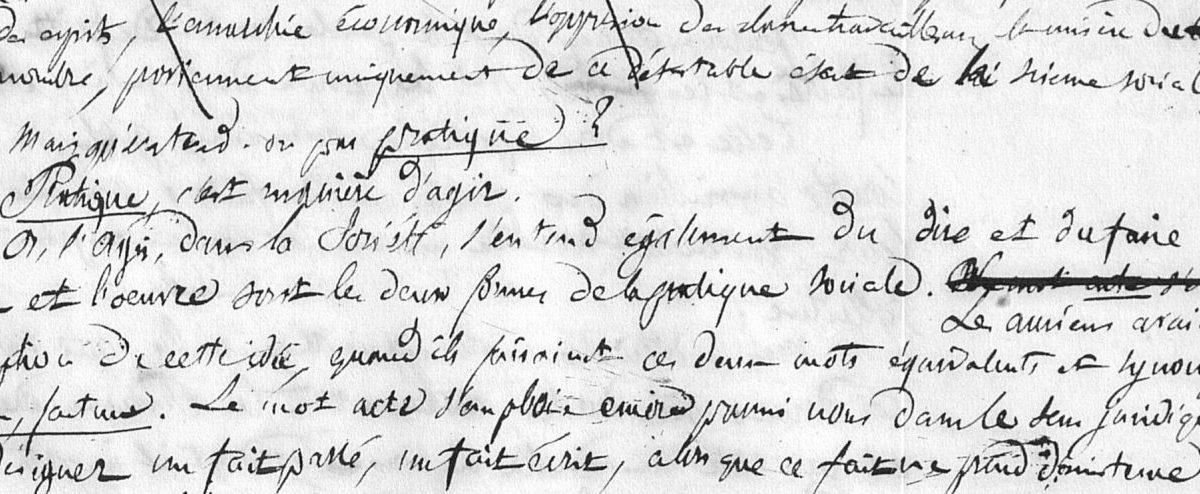 des esprits, l'anarchie économique, l'oppression des classes travailleuses, la misère du
nombre, proviennent uniquement de ce détestable état de la science social
Mais qu'entend-on par pratique ?
Pratique, c'est manière d'agir.
Or, l'agir, dans la Société, s'entend également du dire et du faire
et l'oeuvre sont les deux formes de la pratique sociale.
Les anciens avai
de cette idée, quand ils faisaient ces deux mots équivalents et synon
, facture. Le mot acte s'emploie encore parmi nous dans le sens juridiq
désigner un fait passé, un fait écrit, alors que ce fait ne